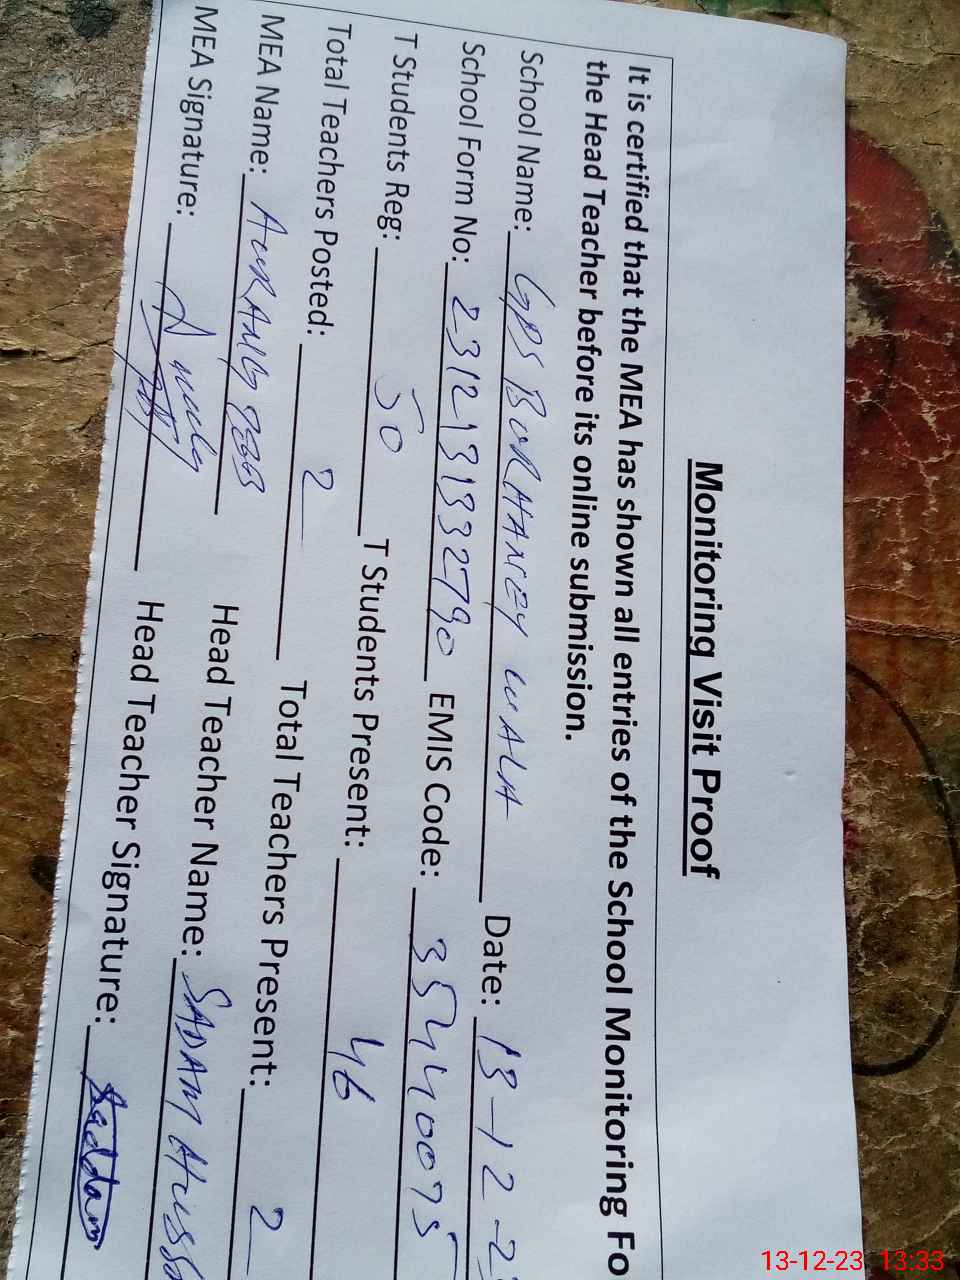 Monitoring Visit Proof
It is certified that the MEA has shown all entries of the School Monitoring Fo
the Head Teacher before its online submission.
School Name: GPS BURHANEY WALA Date: 13-12-2
School Form No: 2312131332790 EMIS Code: 35440075
T Students Reg: 50 T Students Present: 46
Total Teachers Posted: 2 Total Teachers Present: 2
MEA Name: AURANG ZEB Head Teacher Name: SADAM Huss
MEA Signature: Head Teacher Signature: Saddam
13-12-23 13:33